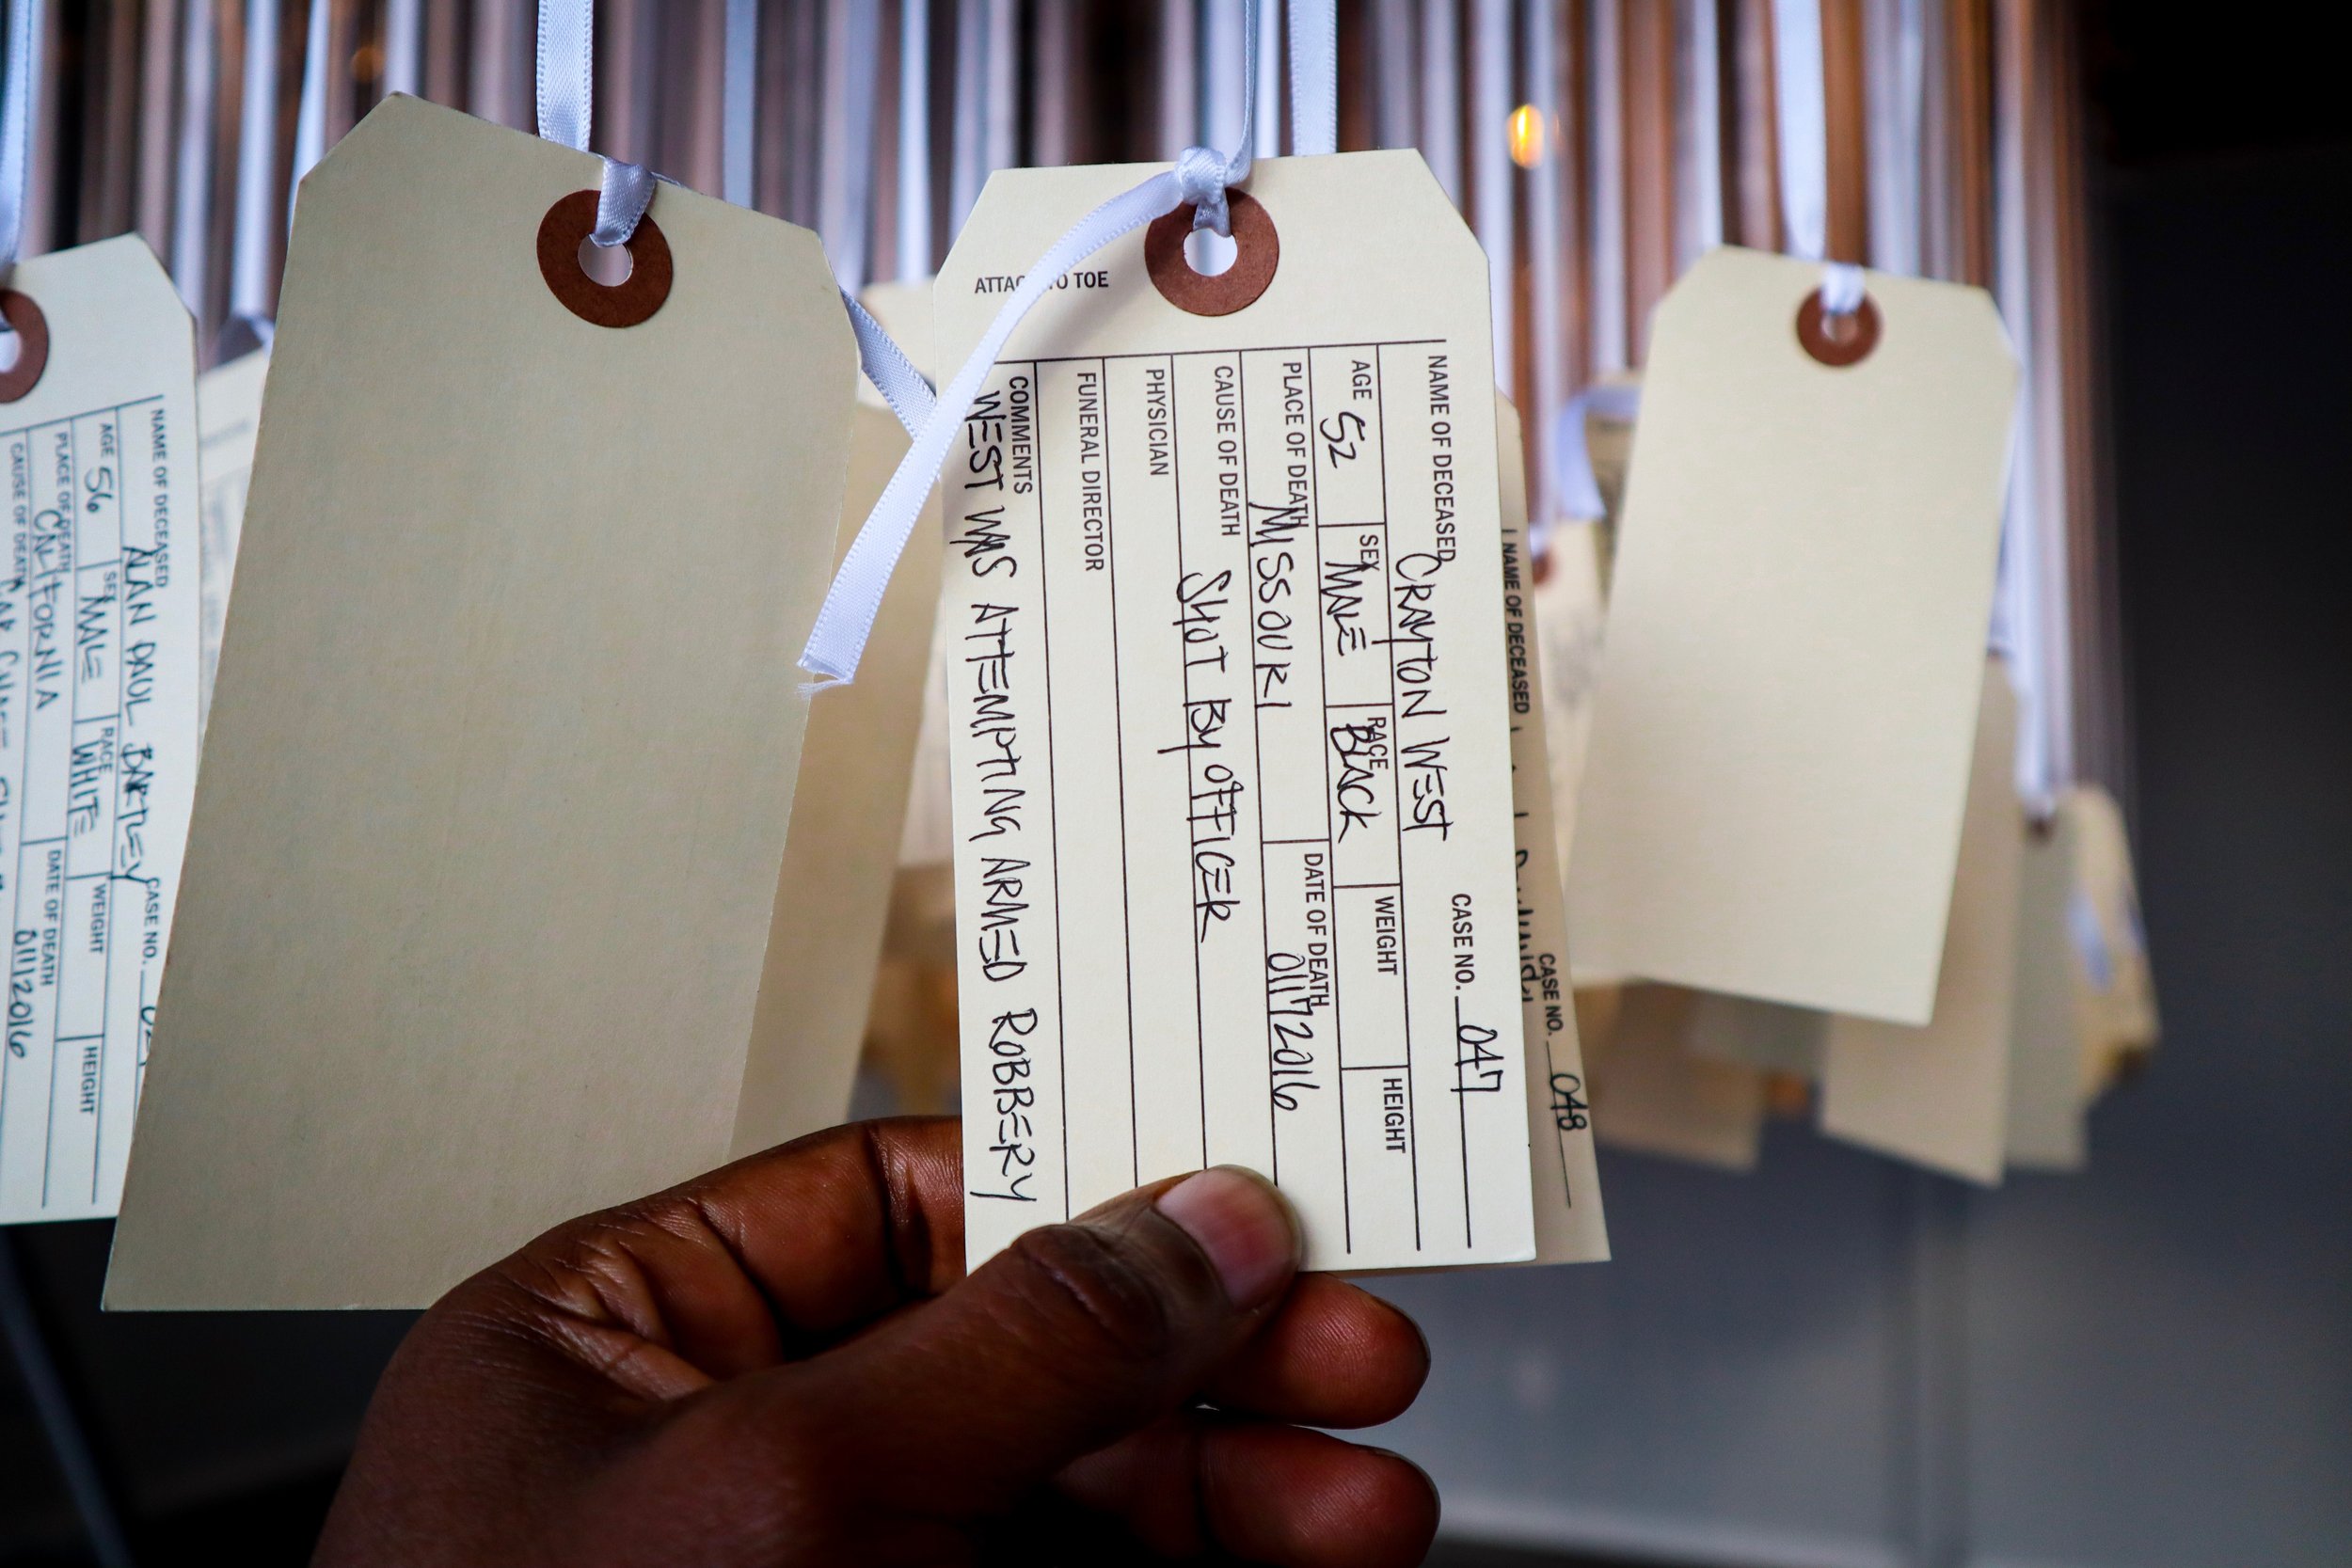 ATTACH TO TOE
NAME OF DECEASED CRAYTON WEST CASE NO. 047
AGE 52 SEX MALE RACE BLACK WEIGHT HEIGHT
PLACE OF DEATH MISSOURI DATE OF DEATH 01172016
CAUSE OF DEATH SHOT BY OFFICER
PHYSICIAN
FUNERAL DIRECTOR
COMMENTS
WEST WAS ATTEMPTING ARMED ROBBERY
NAME OF DECEASED ALAN PAUL BARTLEY CASE NO.
AGE 56 SEX MALE RACE WHITE WEIGHT HEIGHT
PLACE OF DEATH CALIFORNIA DATE OF DEATH 01112016
CAUSE OF DEATH CAR CHASE
NAME OF DECEASED CASE NO. 048